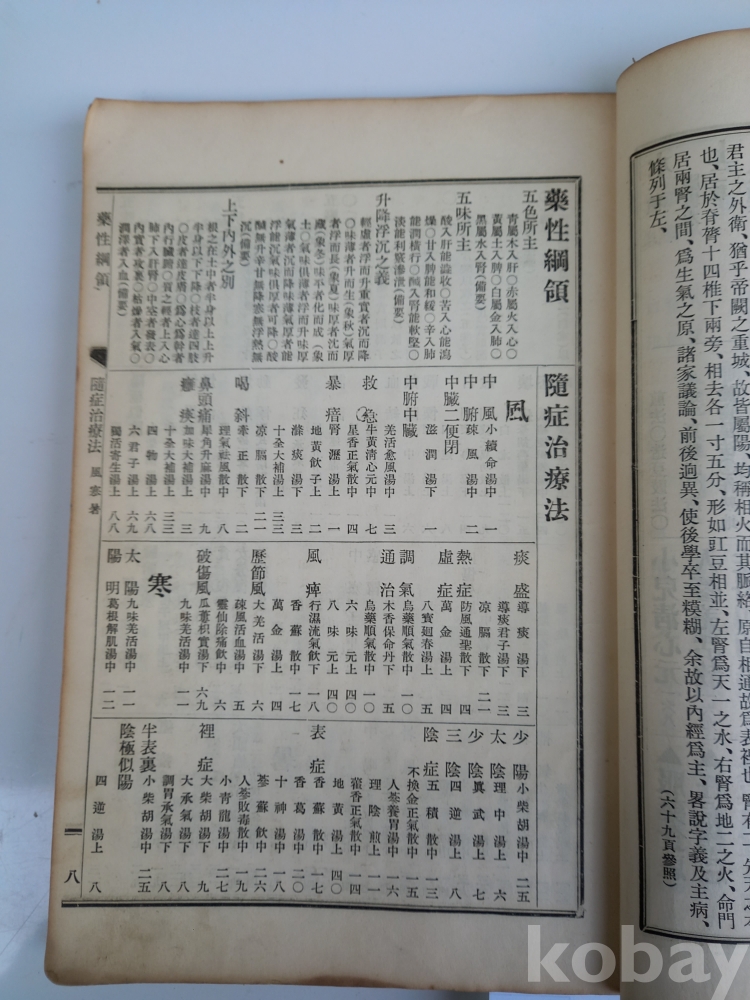 君主之外衛、猶乎帝闕之重城、故皆屬陽、均稱相火而其脈絡、原自相通故爲表裡也
也、居於脊膂十四椎下兩旁、相去各一寸五分、形如豇豆相並、左腎爲天一之水、右腎爲地二之火、命門
居兩腎之間、爲生氣之原、諸家議論、前後逈異、使後學卒至糢糊、余故以內經爲主、畧說字義及主病、
條列于左、（六十九頁參照）
藥性綱領
五色所主
青屬木入肝〇赤屬火入心〇
黃屬土入脾〇白屬金入肺〇
黑屬水入腎(備要)
五味所主
酸入肝能澁收〇苦入心能瀉
燥〇甘入脾能和緩〇辛入肺
能潤橫行〇鹹入腎能軟堅〇
淡能利竅滲泄(備要)
升降浮沉之義
輕虛者浮而升重實者沉而降
〇味薄者升而生(象秋)氣厚
者浮而長(象夏)味厚者沈而
藏(象冬)味平者化而成(象
土)〇氣味俱薄者浮而升味厚
氣薄者沉而降味薄氣厚者能
浮能沉氣味俱厚者可降〇酸
鹹無升辛甘無降寒無浮熱無
沉(備要)
上下內外之別
根之在土中者半身以上上升
半身以下下降〇枝者達四肢
〇皮者達皮膚〇爲心爲幹者
內行臟腑〇質之輕者上入心
肺下入肝腎〇中空者發表〇
內實者攻裏〇枯燥者入氣〇
潤澤者入血(備要)
隨症治療法
風
中風 小續命湯中 一
中腑 疎風湯中 二
中臟二便閉
滋潤湯下 一
中腑中臟
羌活愈風湯中 三
救急 牛黃清心元中 七
星香正氣散中 四
暴瘖 腎瀝湯上 一
地黃飮子上 二
滌痰湯下 三
十全大補湯上 三三
喎斜 凉膈散下 二一
牽正散下 二
理氣祛風散中 八
鼻頭痛 犀角升麻湯中 九
癱瘓 加味大補湯中 三
十全大補湯上 三三
四物湯上 六八
六君子湯上 六九
獨活寄生湯上 六八
痰盛 導痰湯下 三
導痰君子湯下 三
凉膈散下 二一
熱症 防風通聖散下 四
虛症 萬金湯上 四
八寶迴春湯上 五
調氣 烏藥順氣散中 一〇
通治 木香保命丹下 五
烏藥順氣散中 一〇
六味元上 四〇
八味元上 四〇
風痺 行濕流氣飮下 一八
香蘇散中 一七
萬金湯上 四
歷節風 大羌活湯下 六
疎風活血湯中 五
靈仙除痛飮中 六
破傷風 瓜蔞枳實湯下 六九
九味羌活湯中 一一
寒
太陽 九味羌活湯中 一一
陽明 葛根解肌湯中 一二
少陽 小柴胡湯中 二五
太陰 理中湯上 六
少陰 眞武湯上 七
三陰 四逆湯上 八
陰症 五積散中 一三
不換金正氣散中 一五
人蔘養胃湯中 一六
理陰煎上 一一
藿香正氣散中 一四
地黃湯上 四〇
表症 香蘇散中 一七
香葛湯中 一八
十神湯中 一八
蔘蘇飮中 二六
人蔘敗毒散中 一九
小靑龍湯中 二七
裡症 大柴胡湯下 九
大承氣湯下 八
調胃承氣湯下 八
半表裏 小柴胡湯中 二五
陰極似陽
四逆湯上 八
藥性綱領 隨症治療法 風 寒 暑
八
kobay